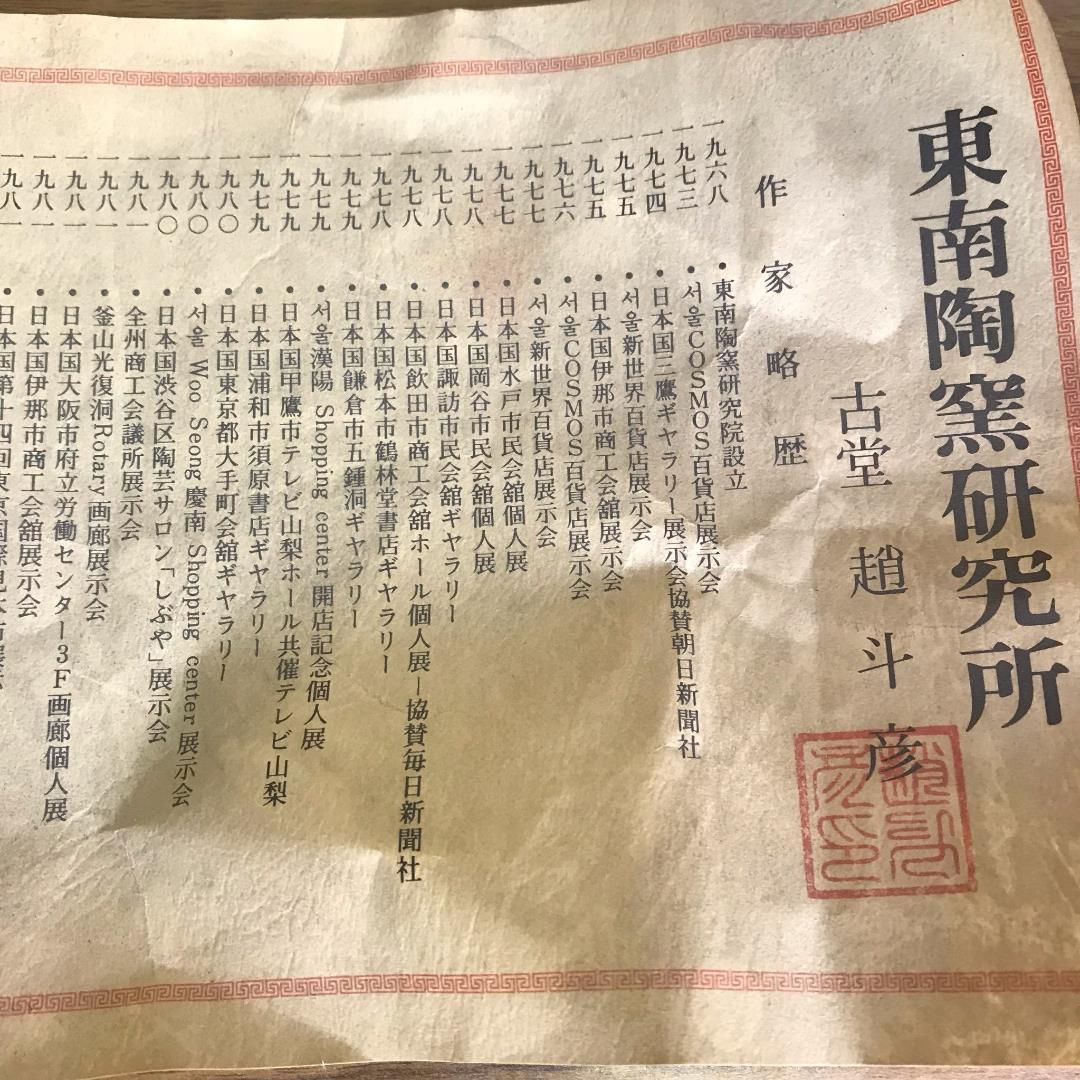 東南陶窯研究所
古堂 趙斗彦
作家略歴
一九六八 • 東南陶窯研究院設立
一九七三 • 서울COSMOS百貨店展示会
一九七四 • 日本国三鷹ギヤラリー展示会協賛朝日新聞社
一九七五 • 서울新世界百貨店展示会
一九七五 • 日本国伊那市商工会舘展示会
一九七六 • 서울COSMOS百貨店展示会
一九七七 • 서울新世界百貨店展示会
一九七七 • 日本国水戸市民会舘個人展
一九七八 • 日本国岡谷市民会舘個人展
一九七八 • 日本国諏訪市民会舘ギヤラリー
一九七八 • 日本国飲田市商工会舘ホール個人展ー協賛毎日新聞社
一九七八 • 日本国松本市鶴林堂書店ギヤラリー
一九七九 • 日本国鎌倉市五鍾洞ギヤラリー
一九七九 • 서울漢陽 Shopping center 開店記念個人展
一九七九 • 日本国甲鷹市テレビ山梨ホール共催テレビ山梨
一九七九 • 日本国浦和市須原書店ギヤラリー
一九八〇 • 日本国東京都大手町会舘ギヤラリー
一九八〇 • 서울 Woo Seong 慶南 Shopping center 展示会
一九八〇 • 日本国渋谷区陶芸サロン「しぶや」展示会
一九八一 • 全州商工会議所展示会
一九八一 • 釜山光復洞Rotary画廊展示会
一九八一 • 日本国大阪市府立労働センター3F画廊個人展
一九八一 • 日本国伊那市商工会舘展示会
一九八一 • 日本国第十四回東京国際見本市展示